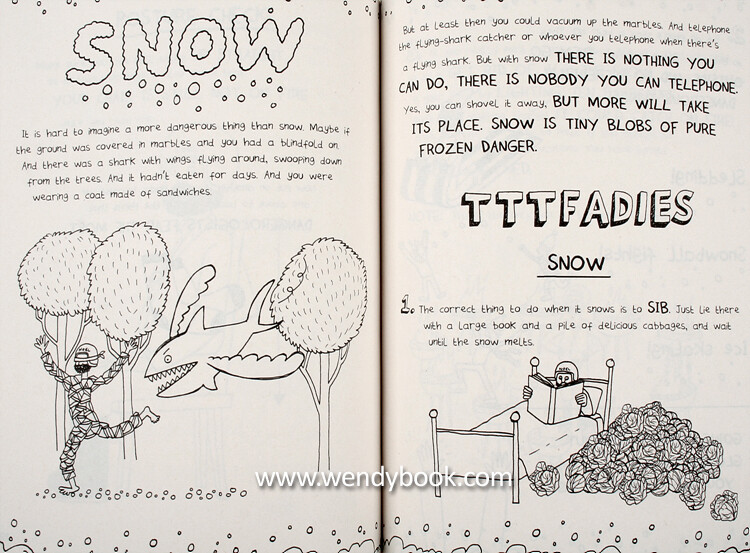 SNOW
It is hard to imagine a more dangerous thing than snow. Maybe if
the ground was covered in marbles and you had a blindfold on.
And there was a shark with wings flying around, swooping down
from the trees. And it hadn't eaten for days. And you were
wearing a coat made of sandwiches.
But at least then you could vacuum up the marbles. And telephone
the flying-shark catcher or whoever you telephone when there's
a flying shark. But with snow THERE IS NOTHING YOU
CAN DO, THERE IS NOBODY YOU CAN TELEPHONE.
Yes, you can shovel it away, BUT MORE WILL TAKE
ITS PLACE. SNOW IS TINY BLOBS OF PURE
FROZEN DANGER.
TTTFADIES
SNOW
1. The correct thing to do when it snows is to SIB. Just lie there
with a large book and a pile of delicious cabbages, and wait
until the snow melts.
www.wendybook.com